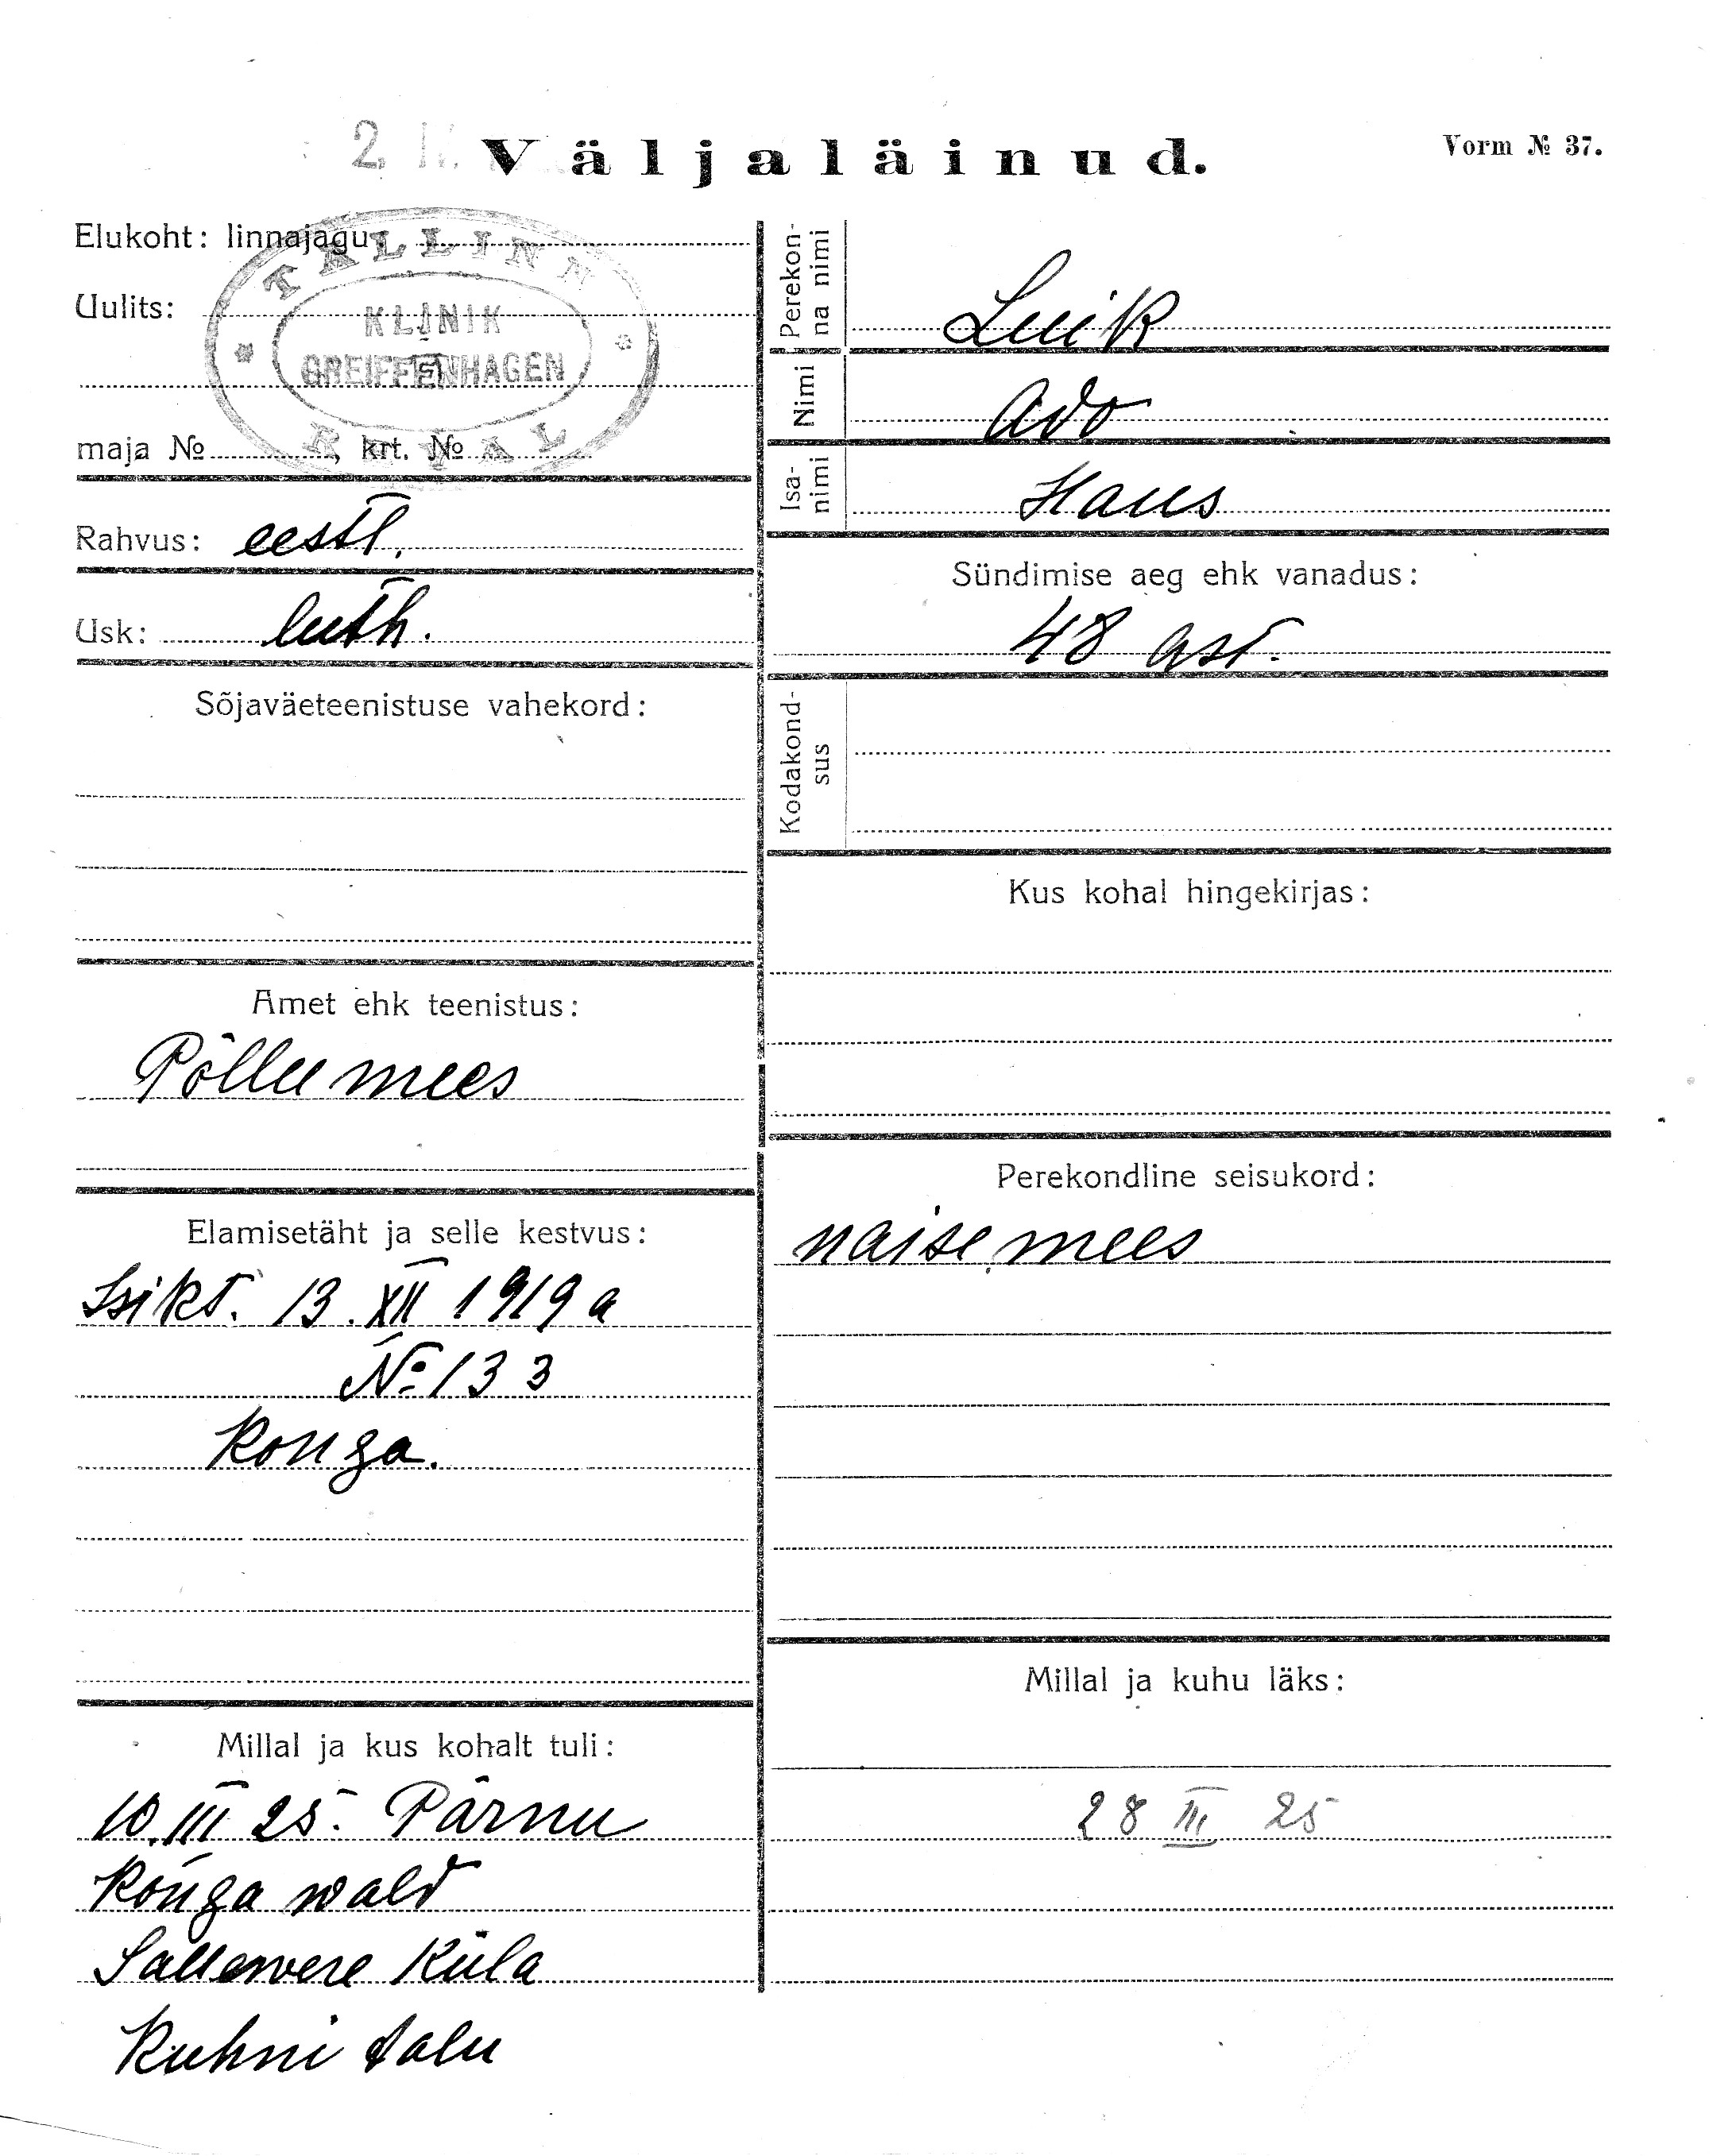 Väljaläinud.
Vorm № 37.
Elukoht: linnajagu
TALLINN
KLINIK
GREIFFENHAGEN
REVAL
Uulits:
maja № , krt. №
Rahvus: eestl.
Usk: luth.
Sõjaväeteenistuse vahekord:
Amet ehk teenistus:
Põllumees
Elamisetäht ja selle kestvus:
Isikt. 13. XII 1919 a
№ 133
Konga.
Millal ja kus kohalt tuli:
10. III 25. Pärnu
Konga wald
Sallewere Küla
Kuhni talu
Perekon-
na nimi
Luik
Nimi
Ado
Isa-
nimi
Hans
Sündimise aeg ehk vanadus:
48 ast.
Kodakond-
sus
Kus kohal hingekirjas:
Perekondline seisukord:
naisemees
Millal ja kuhu läks:
28 III 25